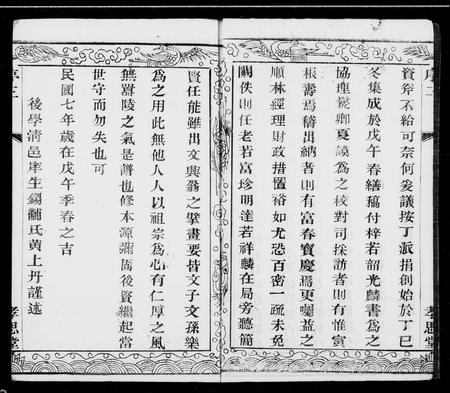 序二
資斧不給可奈何爰議按丁派捐創始於丁巳
冬集成於戊午春繕稿付梓若韶光麟書為之
協理髮卿夏謨為之校對司採訪者則有惟寅
根壽焉稽出納者則有富春寶慶焉更囑益之
順林經理財政措置裕如尤恐百密一疏未免
闕佚則任老若富珍明達若祥麟在局旁聽簡
孝思堂
序三
賢任能雖出文興翁之擘畫要皆文子文孫樂
為之用此無他人人以祖宗為心有仁厚之風
無囂陵之氣是譜也修本源彌固後賢繼起當
世守而勿失也可
民國七年歲在戊午季春之吉
後學清邑庠生錫黼氏黄上丹謹述
孝思堂